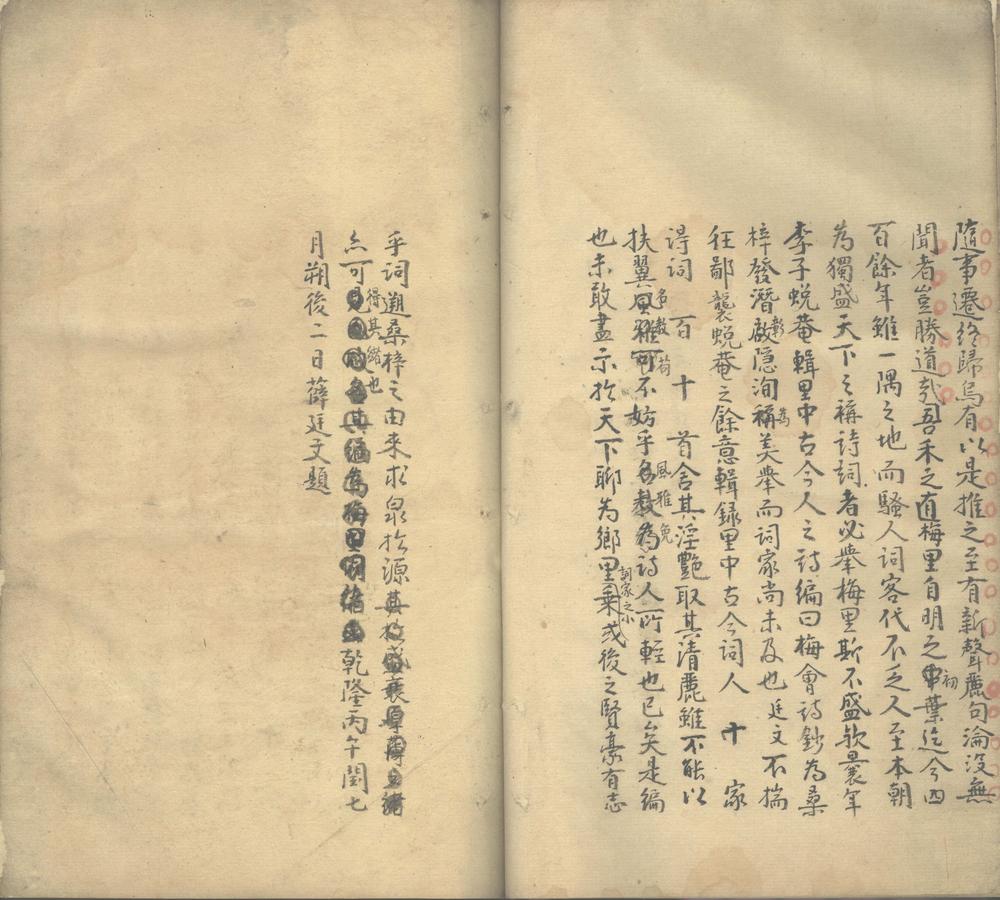 隨事遷終歸烏有以是推之至有新聲麗句淪沒無
聞者豈勝道哉吾禾之有梅里自明之中初葉迄今四
百餘年雖一隅之地而騷人詞客代不乏人至本朝
為獨盛天下之稱詩詞者必舉梅里斯不盛欤曩年
李子蛻菴輯里中古今人之詩編曰梅會詩鈔為桑
梓發潛彰啟隱洵為稱美舉而詞家尚未及也廷文不揣
狂鄙襲蛻菴之餘意輯録里中古今詞人 十 家
得詞 百 十 首舍其淫艷取其清麗雖不能以
扶翼名教風雅苟可不妨乎風雅名教免為詩人所輕也已矣是編
也未敢盡示於天下聊為鄉里詞家之小乘或後之賢豪有志
乎詞遡桑梓之由來求泉於源其於盛衰厚薄之緒
亦可得其緒也見其編為梅里詞緒乾隆丙午閏七
月朔後二日薛廷文題